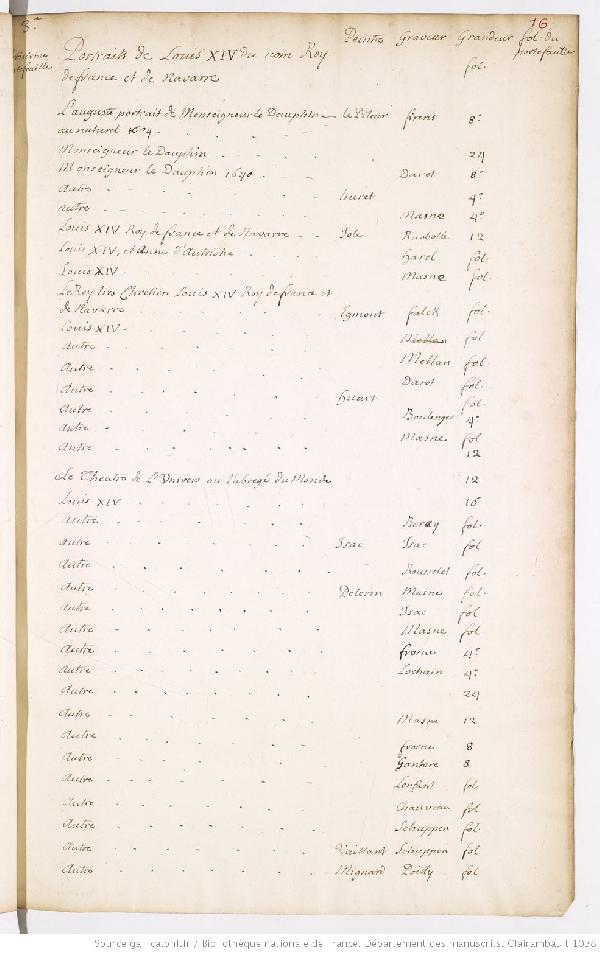 3.e 16
Peintre Graveur Grandeur fol. du portefeuille
Portraits de Louis XIV du nom Roy fol.
de france et de Navarre
L'auguste portrait de Monseigneur le Dauphin le Pileur firens 8.°
au naturel
Monseigneur le Dauphin 24
Monseigneur le Dauphin 1640 Daret 8.°
Autre huret 4.°
autre Masne 4.°
Louis XIV Roy de france et de Navarre 12
Louis XIV, et Anne d'Autriche fol.
Louis XIV Masne fol.
Le Roy tres Chretien Louis XIV Roy de france et
de Navarre Egmont falck fol.
Louis XIV Mellan fol
Autre Mellan fol.
Autre Daret fol.
Autre huart fol.
Autre Boulanger 4.°
Autre Masne fol
Autre 12
Le Theatre de L'Univers ou l'abregé du Monde 12
Louis XIV 16
Autre fol.
Autre Isac Isac fol
Autre Rousselet fol.
Autre Pelerin Masne fol.
Autre Isac fol
Autre Masne fol
Autre frosne 4.°
Autre Lochain 4.°
Autre 24
Autre Masne 12
Autre frosne 8
Autre 8
Autre Lenfant fol
Autre Chauveau fol
Autre Schuppen fol.
Autre Vaillant Schuppen fol
Autre Mignard Poilly fol
Source gallica.bnf.fr / Bibliothèque nationale de France. Département des manuscrits. Clairambault 1038